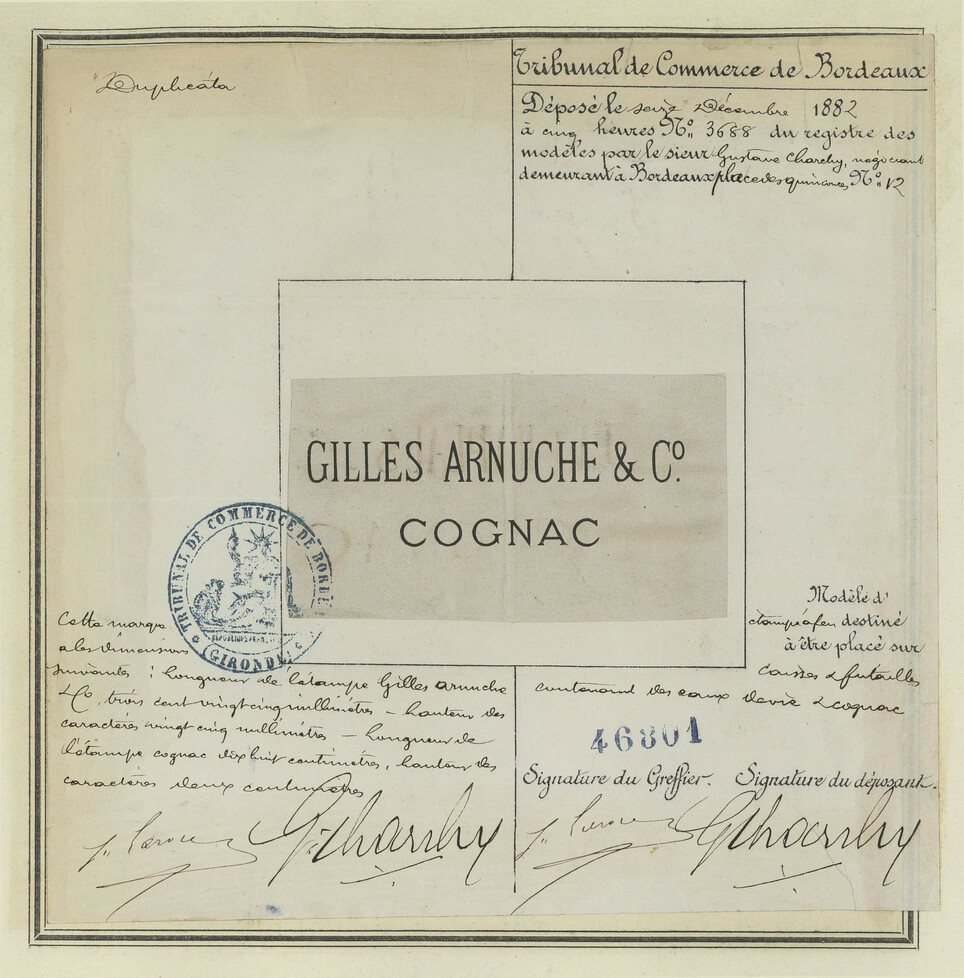 Duplicata
Tribunal de Commerce de Bordeaux
Déposé le seize Décembre 1882
à cinq heures Nº 3688 du registre des
modèles par le sieur Gustave Charchy, négociant
demeurant à Bordeaux place des quinconces Nº 12
GILLES ARNUCHE & Cº.
COGNAC
TRIBUNAL DE COMMERCE DE BORDE
(GIRONDE)
Cette marque
a les dimensions
suivantes : longueur de l'étampe Gilles arnuche
& Co, trois cent vingt cinq millimètres – hauteur des
caractères vingt cinq millimètres – longueur de
l'étampe cognac dix huit centimètres, hauteur des
caractères deux centimètres
Modèle d'
étampe à feu destiné
à être placé sur
caisses & futailles
contenant des eaux de vie & cognac
46801
Signature du Greffier. Signature du déposant.